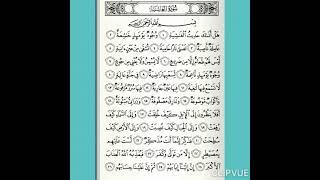 سُورَةُ الغَاشِيَةِ
بِسْمِ ٱللَّهِ ٱلرَّحْمَٰنِ ٱلرَّحِيمِ
هَلْ أَتَىٰكَ حَدِيثُ ٱلْغَٰشِيَةِ ١ وُجُوهٌ يَوْمَئِذٍ خَٰشِعَةٌ ٢
عَامِلَةٌ نَّاصِبَةٌ ٣ تَصْلَىٰ نَارًا حَامِيَةً ٤ تُسْقَىٰ مِنْ عَيْنٍ ءَانِيَةٍ ٥
لَّيْسَ لَهُمْ طَعَامٌ إِلَّا مِن ضَرِيعٍ ٦ لَّا يُسْمِنُ وَلَا يُغْنِى مِن جُوعٍ ٧
وُجُوهٌ يَوْمَئِذٍ نَّاعِمَةٌ ٨ لِّسَعْيِهَا رَاضِيَةٌ ٩ فِى جَنَّةٍ عَالِيَةٍ ١٠
لَّا تَسْمَعُ فِيهَا لَٰغِيَةً ١١ فِيهَا عَيْنٌ جَارِيَةٌ ١٢ فِيهَا سُرُرٌ مَّرْفُوعَةٌ ١٣
وَأَكْوَابٌ مَّوْضُوعَةٌ ١٤ وَنَمَارِقُ مَصْفُوفَةٌ ١٥ وَزَرَابِىُّ مَبْثُوثَةٌ ١٦
أَفَلَا يَنظُرُونَ إِلَى ٱلْإِبِلِ كَيْفَ خُلِقَتْ ١٧ وَإِلَى ٱلسَّمَآءِ كَيْفَ
رُفِعَتْ ١٨ وَإِلَى ٱلْجِبَالِ كَيْفَ نُصِبَتْ ١٩ وَإِلَى ٱلْأَرْضِ كَيْفَ
سُطِحَتْ ٢٠ فَذَكِّرْ إِنَّمَآ أَنتَ مُذَكِّرٌ ٢١ لَّسْتَ عَلَيْهِم
بِمُصَيْطِرٍ ٢٢ إِلَّا مَن تَوَلَّىٰ وَكَفَرَ ٢٣ فَيُعَذِّبُهُ ٱللَّهُ ٱلْعَذَابَ
ٱلْأَكْبَرَ ٢٤ إِنَّ إِلَيْنَآ إِيَابَهُمْ ٢٥ ثُمَّ إِنَّ عَلَيْنَا حِسَابَهُم ٢٦
CLIPVUE